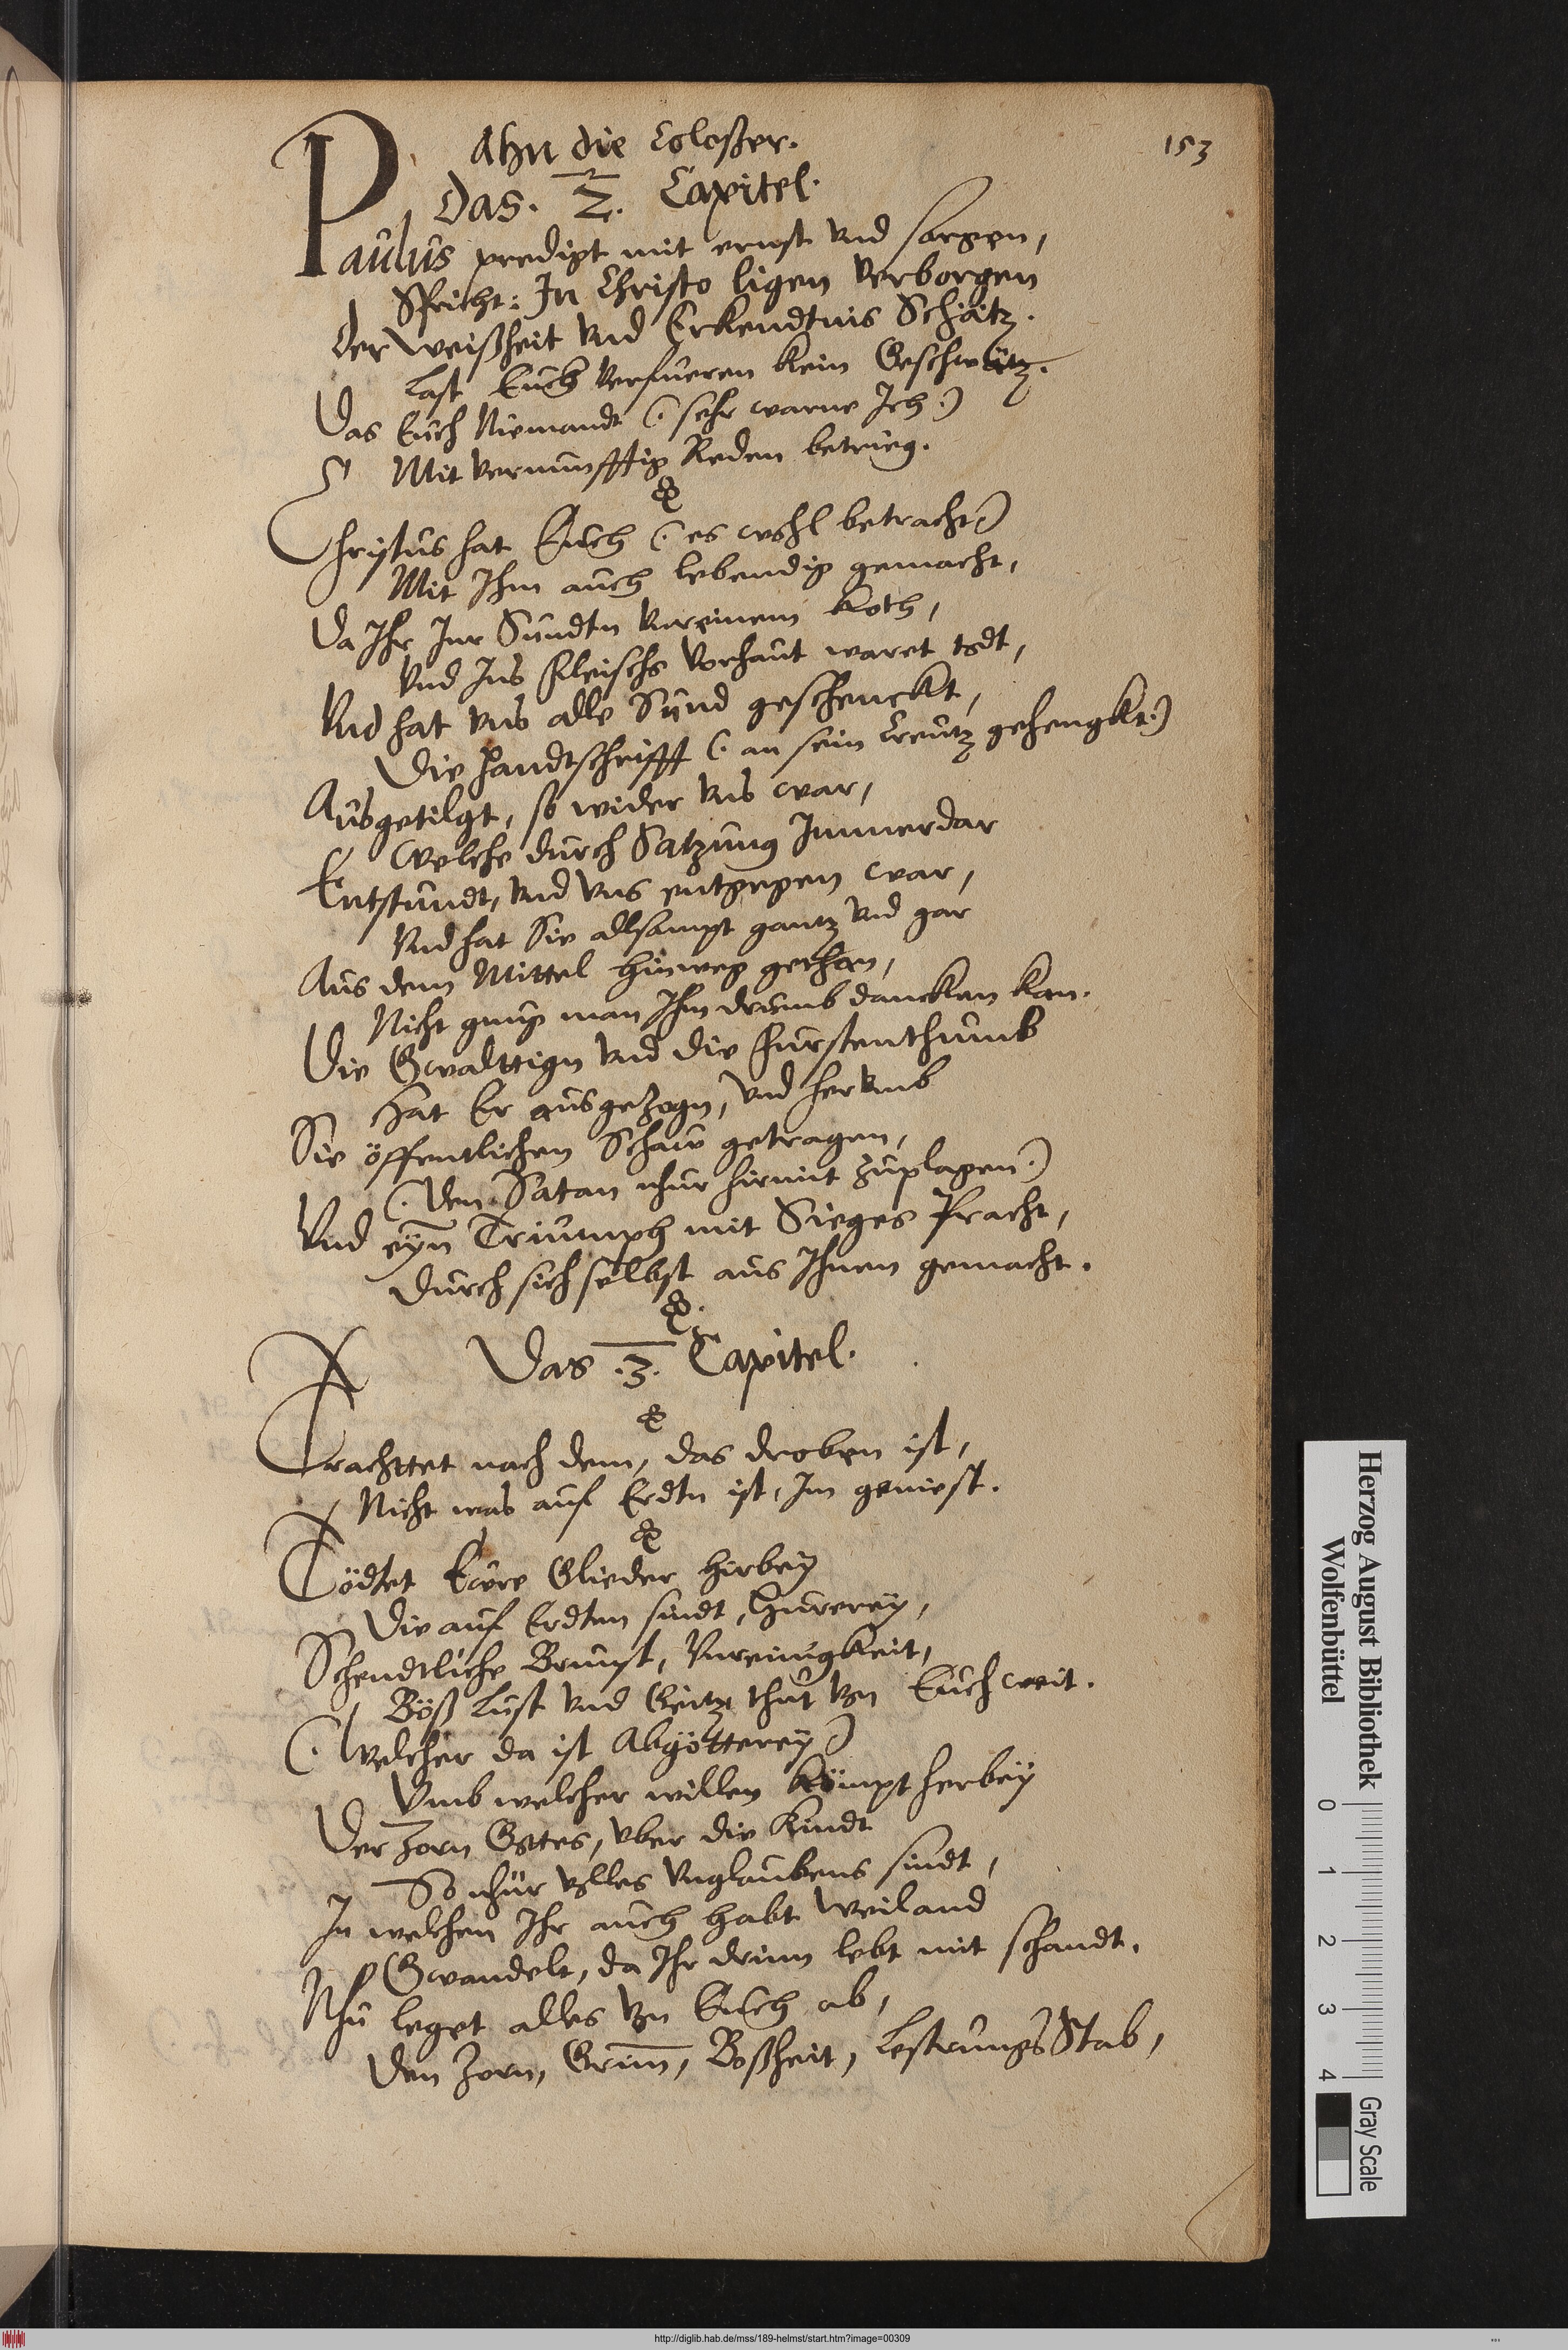 153
Ahn die Coloßer.
Das. 2. Capitel.
Paulus predigt mit ernst vnd sorgen,
Spricht: In Christo ligen verborgen
Der weißheit vnd Erkendtnis Schätz.
Last Euch verfueren kein Geschwätz.
Das Euch Niemandt (: sehr warne Ich :)
Mit vernunfftig Reden betrieg.
Christus hat Euch (: es wohl betracht)
Mit Ihm auch lebendig gemacht,
Da Ihr Inr Sündtn vnreinem Koth,
Vnd Ins fleischs Vorhaut waret todt,
Vnd hat vns alle Sünd geschenckt,
Die handtschrifft (: an sein Creutz gehengkt :)
Ausgetilgt, so wider vns war,
Welche durch Satzung Immerdar
Entstundt, vnd vns entgegen war,
Vnd hat Sie allsampt gantz vnd gar
Aus dem Mittel hinweg gethan,
Nicht gnug man Ihm drumb dancken kan.
Die Gwalttign vnd die fürstenthumb
Hat Er ausgezogn, vnd herumb
Sie öffentlichen Schaw getragen,
(: Den Satan nhur hirmit zuplagen :)
Vnd eyn Triumph mit Sieges Pracht,
Durch sich selbst aus Ihnen gemacht.
Das .3. Capitel.
Trachttet nach dem, das droben ist,
Nicht was auf Erdtn ist, Im geniest.
Tödtet Ewre Glieder hirbey
Die auf Erdten sindt, Hurerey,
Schendtliche Brunst, Vnreinigkeit,
Böß Lust vnd Geitz thut von Euch weit.
(: Welcher da ist Abgötterey)
Vmb welcher willen kömpt herbey
Der Zorn Gottes, vber die Kindt
So nhur volles Vnglaubens sindt,
In welchen Ihr auch habt weiland
Gwandelt, da Ihr drinn lebt mit schandt.
Nhu leget alles von Euch ab,
Den Zorn, Grim̅, Boßheit, Lestrungs Stab,
Herzog August Bibliothek
Wolfenbüttel
0 1 2 3 4
Gray Scale
http://diglib.hab.de/mss/189-helmst/start.htm?image=00309